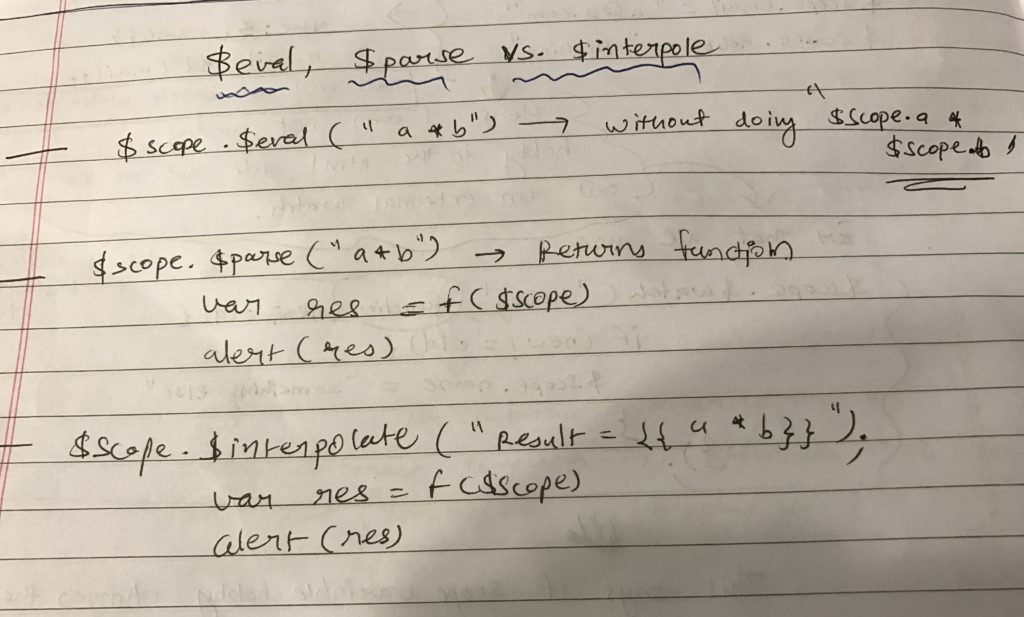 $eval, $parse vs. $interpole
$scope.$eval ("a * b") → without doing "$scope.a *
$scope.b"
$scope. $parse ("a * b") → Returns function
var res = f($scope)
alert (res)
$scope. $interpolate ("Result = {{ a * b}} ");
var res = f($scope)
alert (res)